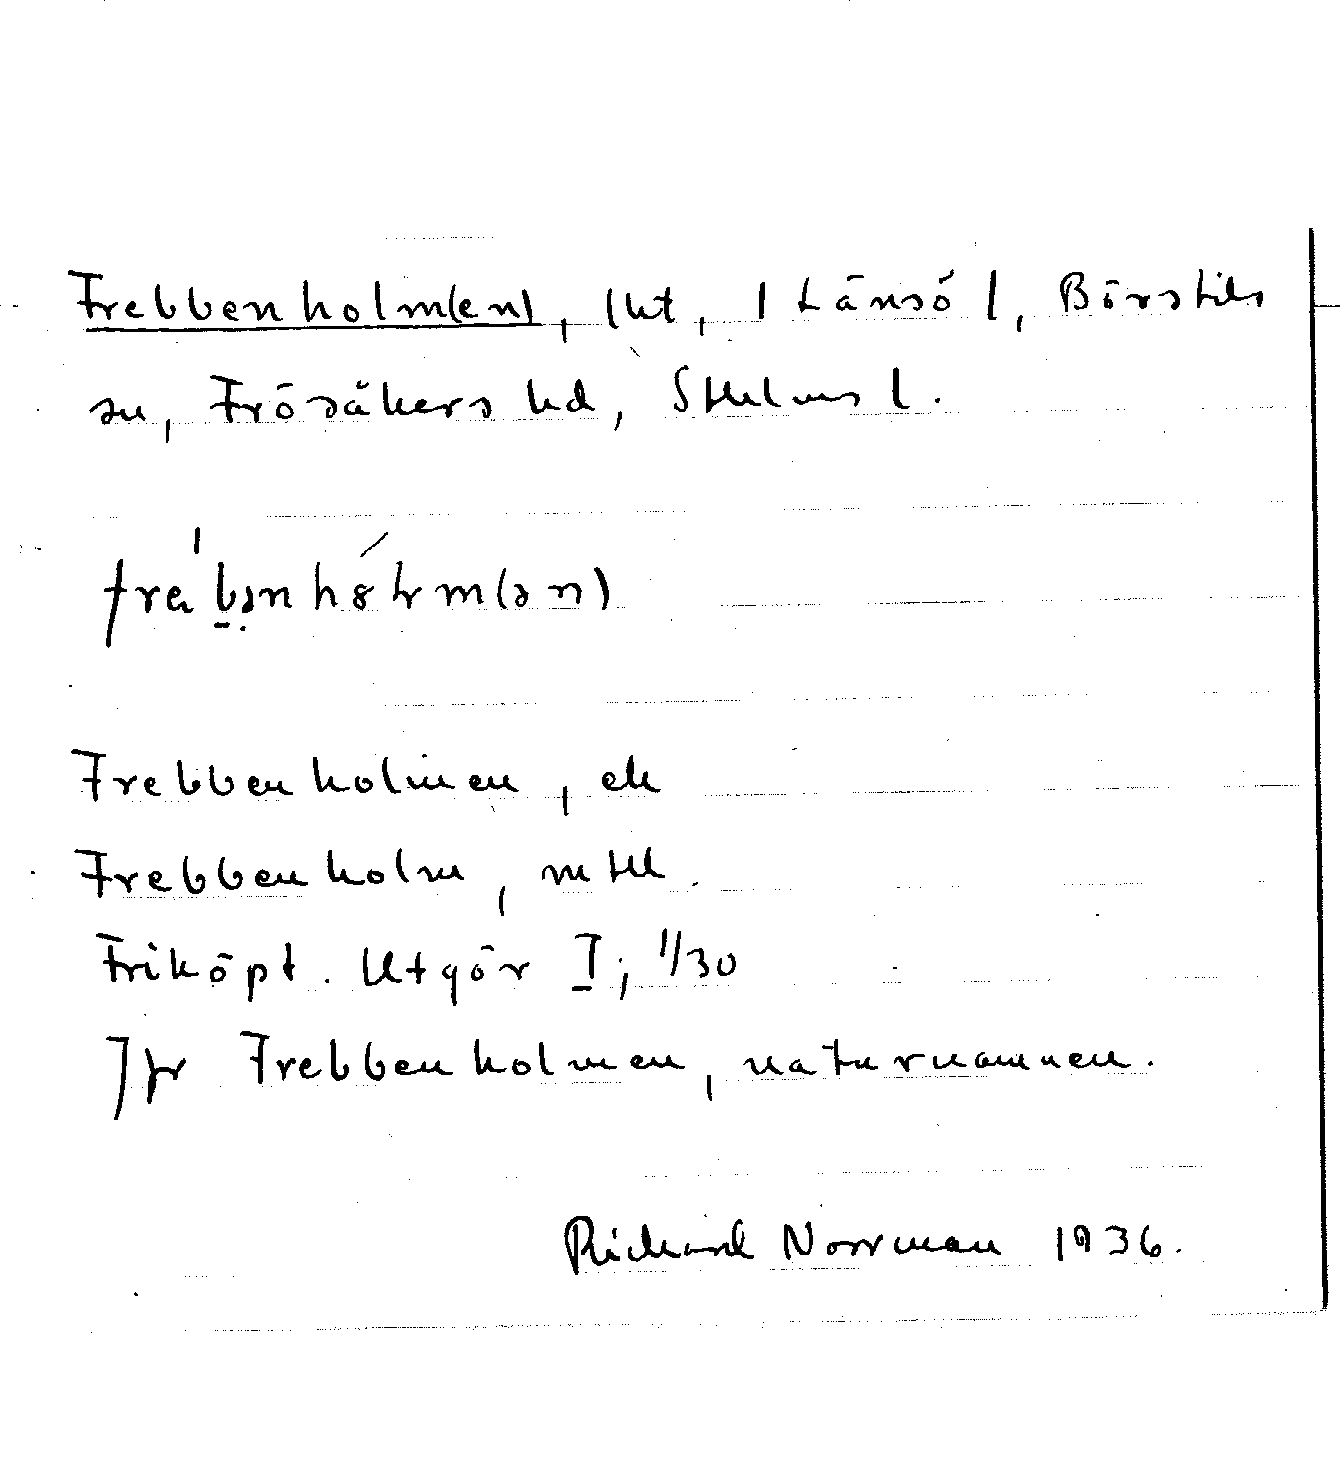 Frebbenholm(en), lht, i Länsö l, Börstils
sn, Frösåkers hd, Sthlms l.
fräbənhólm(ən)
Frebbenholmen, ek
Frebbenholm, mtll.
Friköpt. Utgör I; 1/30
Jfr Frebbenholmen, naturnamnen.
Richard Norrman 1936.